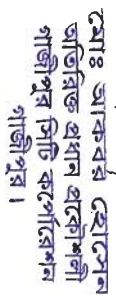 মোঃ আকবর হোসেন
অতিরিক্ত প্রধান প্রকৌশলী
গাজীপুর সিটি কর্পোরেশন
গাজীপুর।